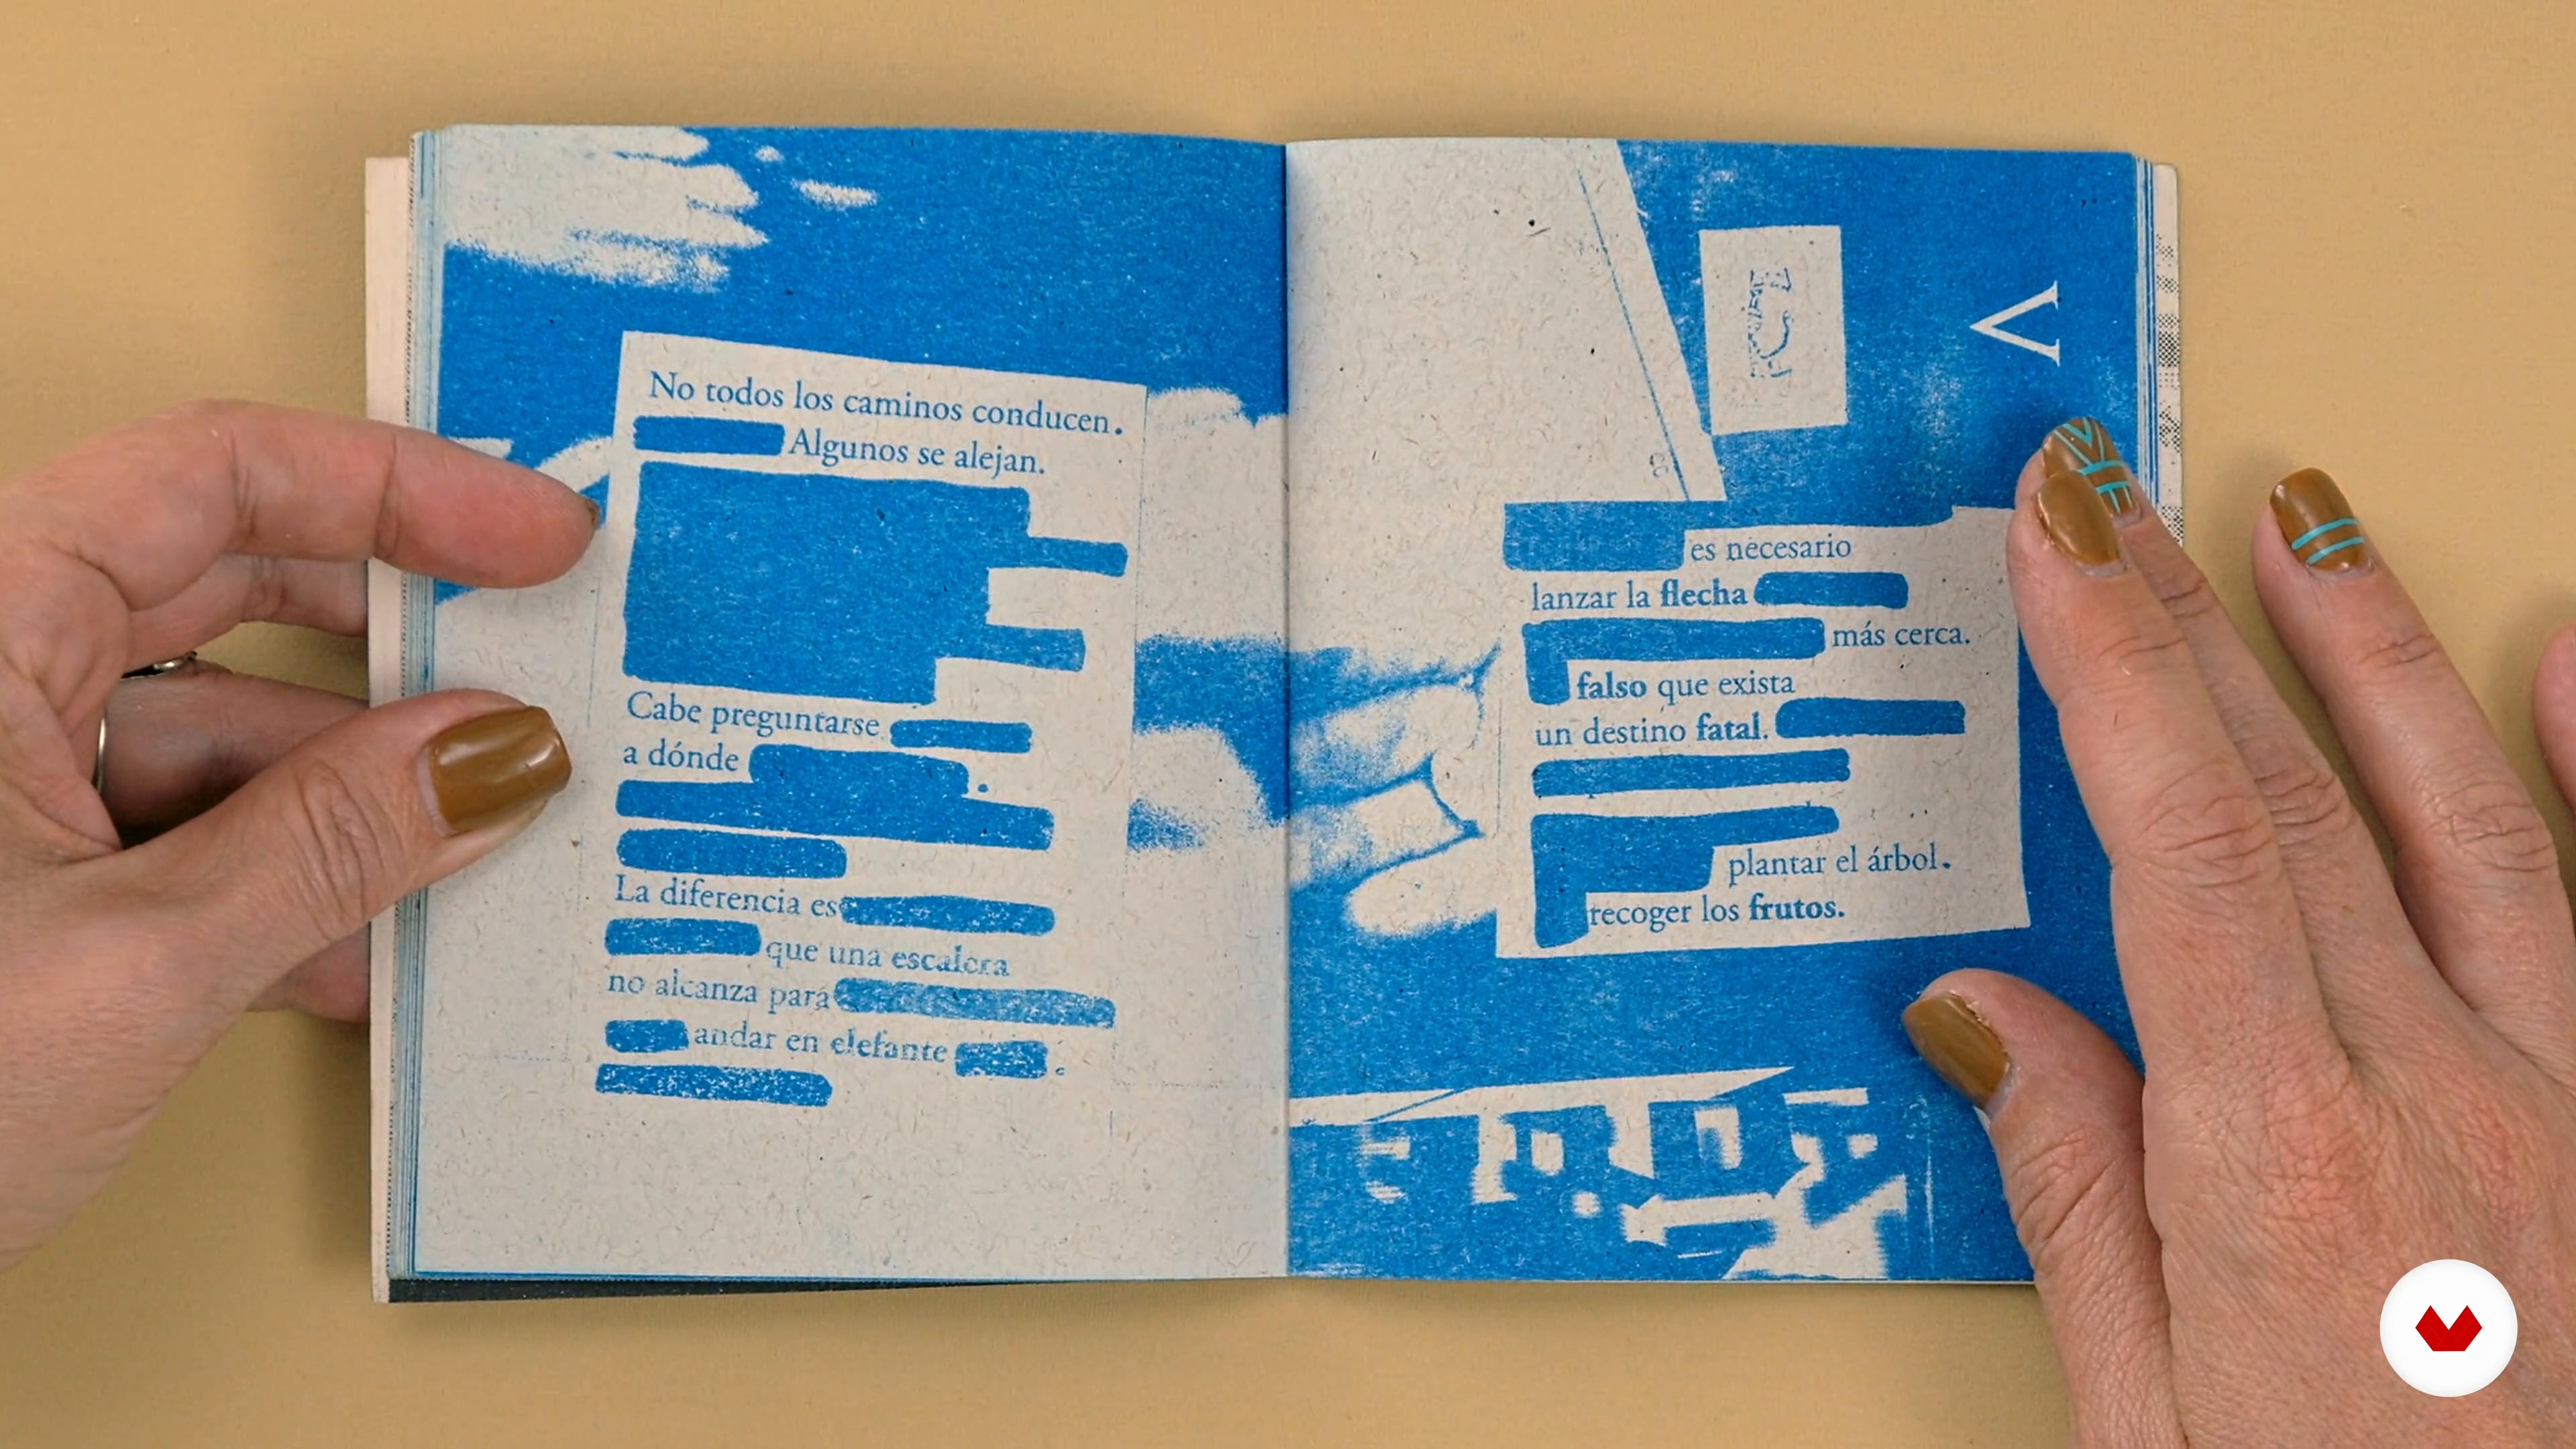 No todos los caminos conducen.
Algunos se alejan.
Cabe preguntarse
a dónde
La diferencia es
que una escalera
no alcanza para
andar en elefante
V
es necesario
lanzar la flecha
más cerca.
falso que exista
un destino fatal.
plantar el árbol.
recoger los frutos.